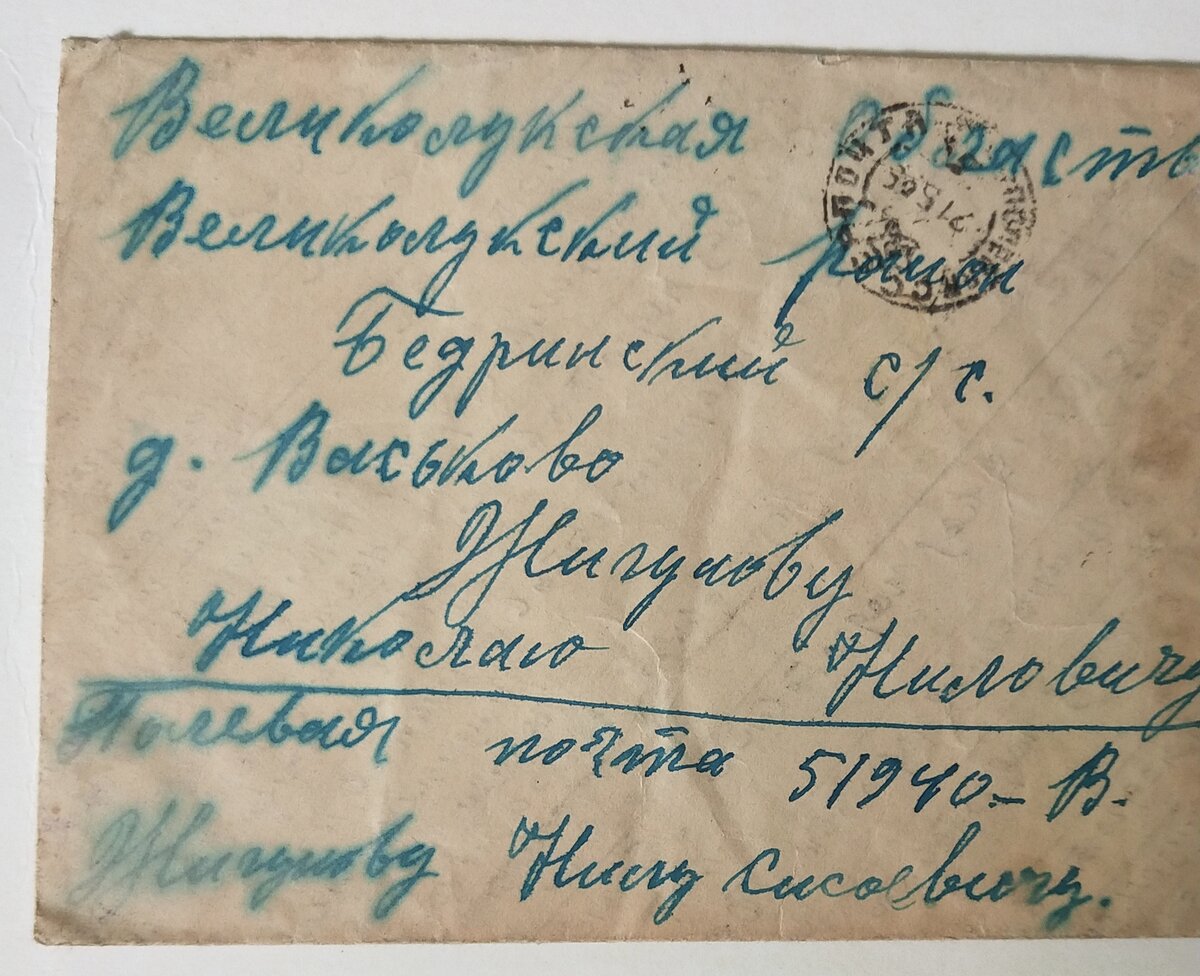 Великолукская область
Великолукский район
Бедринский с/с.
д. Васьково
Жигулову
Николаю Ниловичу
Полевая почта 51940-В.
Жигулову Нилу Сисоевичу.
ПОЧТА
СССР